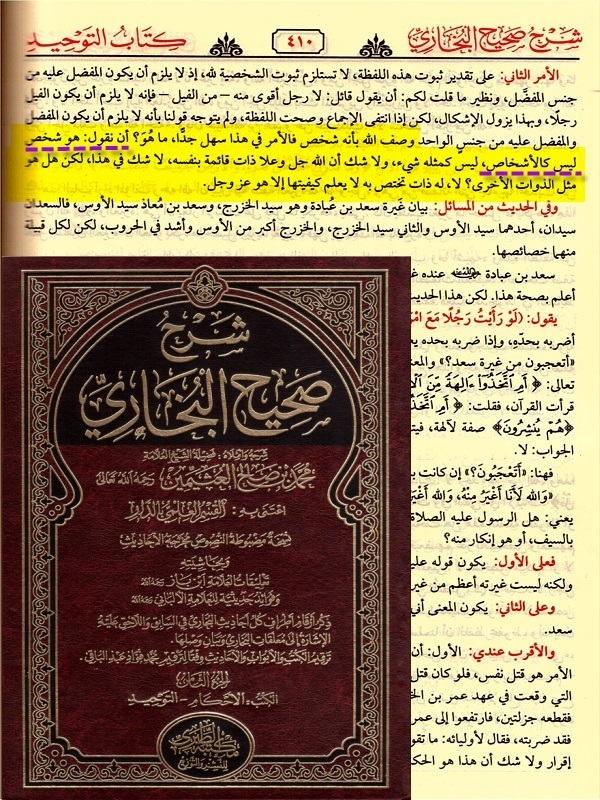 شرح صحيح البخاري
٤١٠
كتاب التوحيد
الأمر الثاني: على تقدير ثبوت هذه اللفظة، لا تستلزم ثبوت الشخصية لله، إذ لا يلزم أن يكون المفضل عليه من
جنس المفضَّل، ونظير ما قلت لكم: أن يقول قائل: لا رجل أقوى منه – من الفيل – فإنه لا يلزم أن يكون الفيل
رجلًا، وبهذا يزول الإشكال، لكن إذا انتفى الإجماع وصحت اللفظة، ولم يتوجه قولنا بأنه لا يلزم أن يكون المفضل
والمفضل عليه من جنس الواحد وصف الله بأنه شخص فالأمر في هذا سهل جدًّا، ما هُوَ؟ أن نقول: هو شخص
ليس كالأشخاص، ليس كمثله شيء، ولا شك أن الله جل وعلا ذات قائمة بنفسه، لا شك في هذا، لكن هل هو
مثل الذوات الأخرى؟ لا، له ذات تختص به لا يعلم كيفيتها إلا هو عز وجل.
وفي الحديث من المسائل: بيان غَيرة سعد بن عُبادة وهو سيد الخزرج، وسعد بن مُعاذ سيد الأوس، فالسعدان
سيدان، أحدهما سيد الأوس والثاني سيد الخزرج، والخزرج أكبر من الأوس وأشد في الحروب، لكن لكل قبيلة
منهما خصائصها.
سعد بن عبادة عنده
أعلم بصحة هذا. لكن هذا الحديث
يقول: (لَوْ رَأَيْتُ رَجُلًا مَعَ
أضربه بحدّه، وإذا ضربه بحده
«أتعجبون من غيرة سعد؟» والمعنى
تعالى: ﴿ أَمِ ٱتَّخَذُوٓا۟ ءَالِهَةً مِّنَ
قرأت القرآن، فقلت: ﴿ أَمِ
﴿هُمْ يُنشِرُونَ﴾ صفة لآلهة،
الجواب: لا.
فهنا: «أَتَعْجَبُونَ؟» إن كانت
«وَالله لَأَنَا أَغْيَرُ مِنْهُ، وَالله
يعني: هل الرسول عليه الصلاة
بالسيف، أو هو إنكار منه؟
فعلى الأول: يكون قوله
ولكنه ليست غيرته أعظم من
وعلى الثاني: يكون المعنى
سعد.
والأقرب عندي: الأول:
الأمر هو قتل نفس، فلو كان
التي وقعت في عهد عمر بن
فقطعه جزلتين، فارتفعوا إلى
فقد ضربته، فقال لأوليائه: ما
إقرار ولا شك أن هذا هو
شرح
صحيح البخاري
شرحه وأملاه: فضيلة الشيخ العلامة
محمد بن صالح العثيمين رحمه الله تعالى
اعتنى به:
نسخة مضبوطة النصوص مخرجة الأحاديث
وبحاشيته
تعليقات العلامة ابن باز رحمه الله
وفوائد حديثية للعلامة الألباني رحمه الله
ذكر أرقام أطراف كل أحاديث البخاري في السابق واللاحق عليه
الإشارة إلى معلقات البخاري وبيان وصلها.
ترقيم الكتب والأبواب والأحاديث وفقًا لترقيم محمد فؤاد عبد الباقي.
الكتب: الأحكام - التوحيد
للنشر والتوزيع